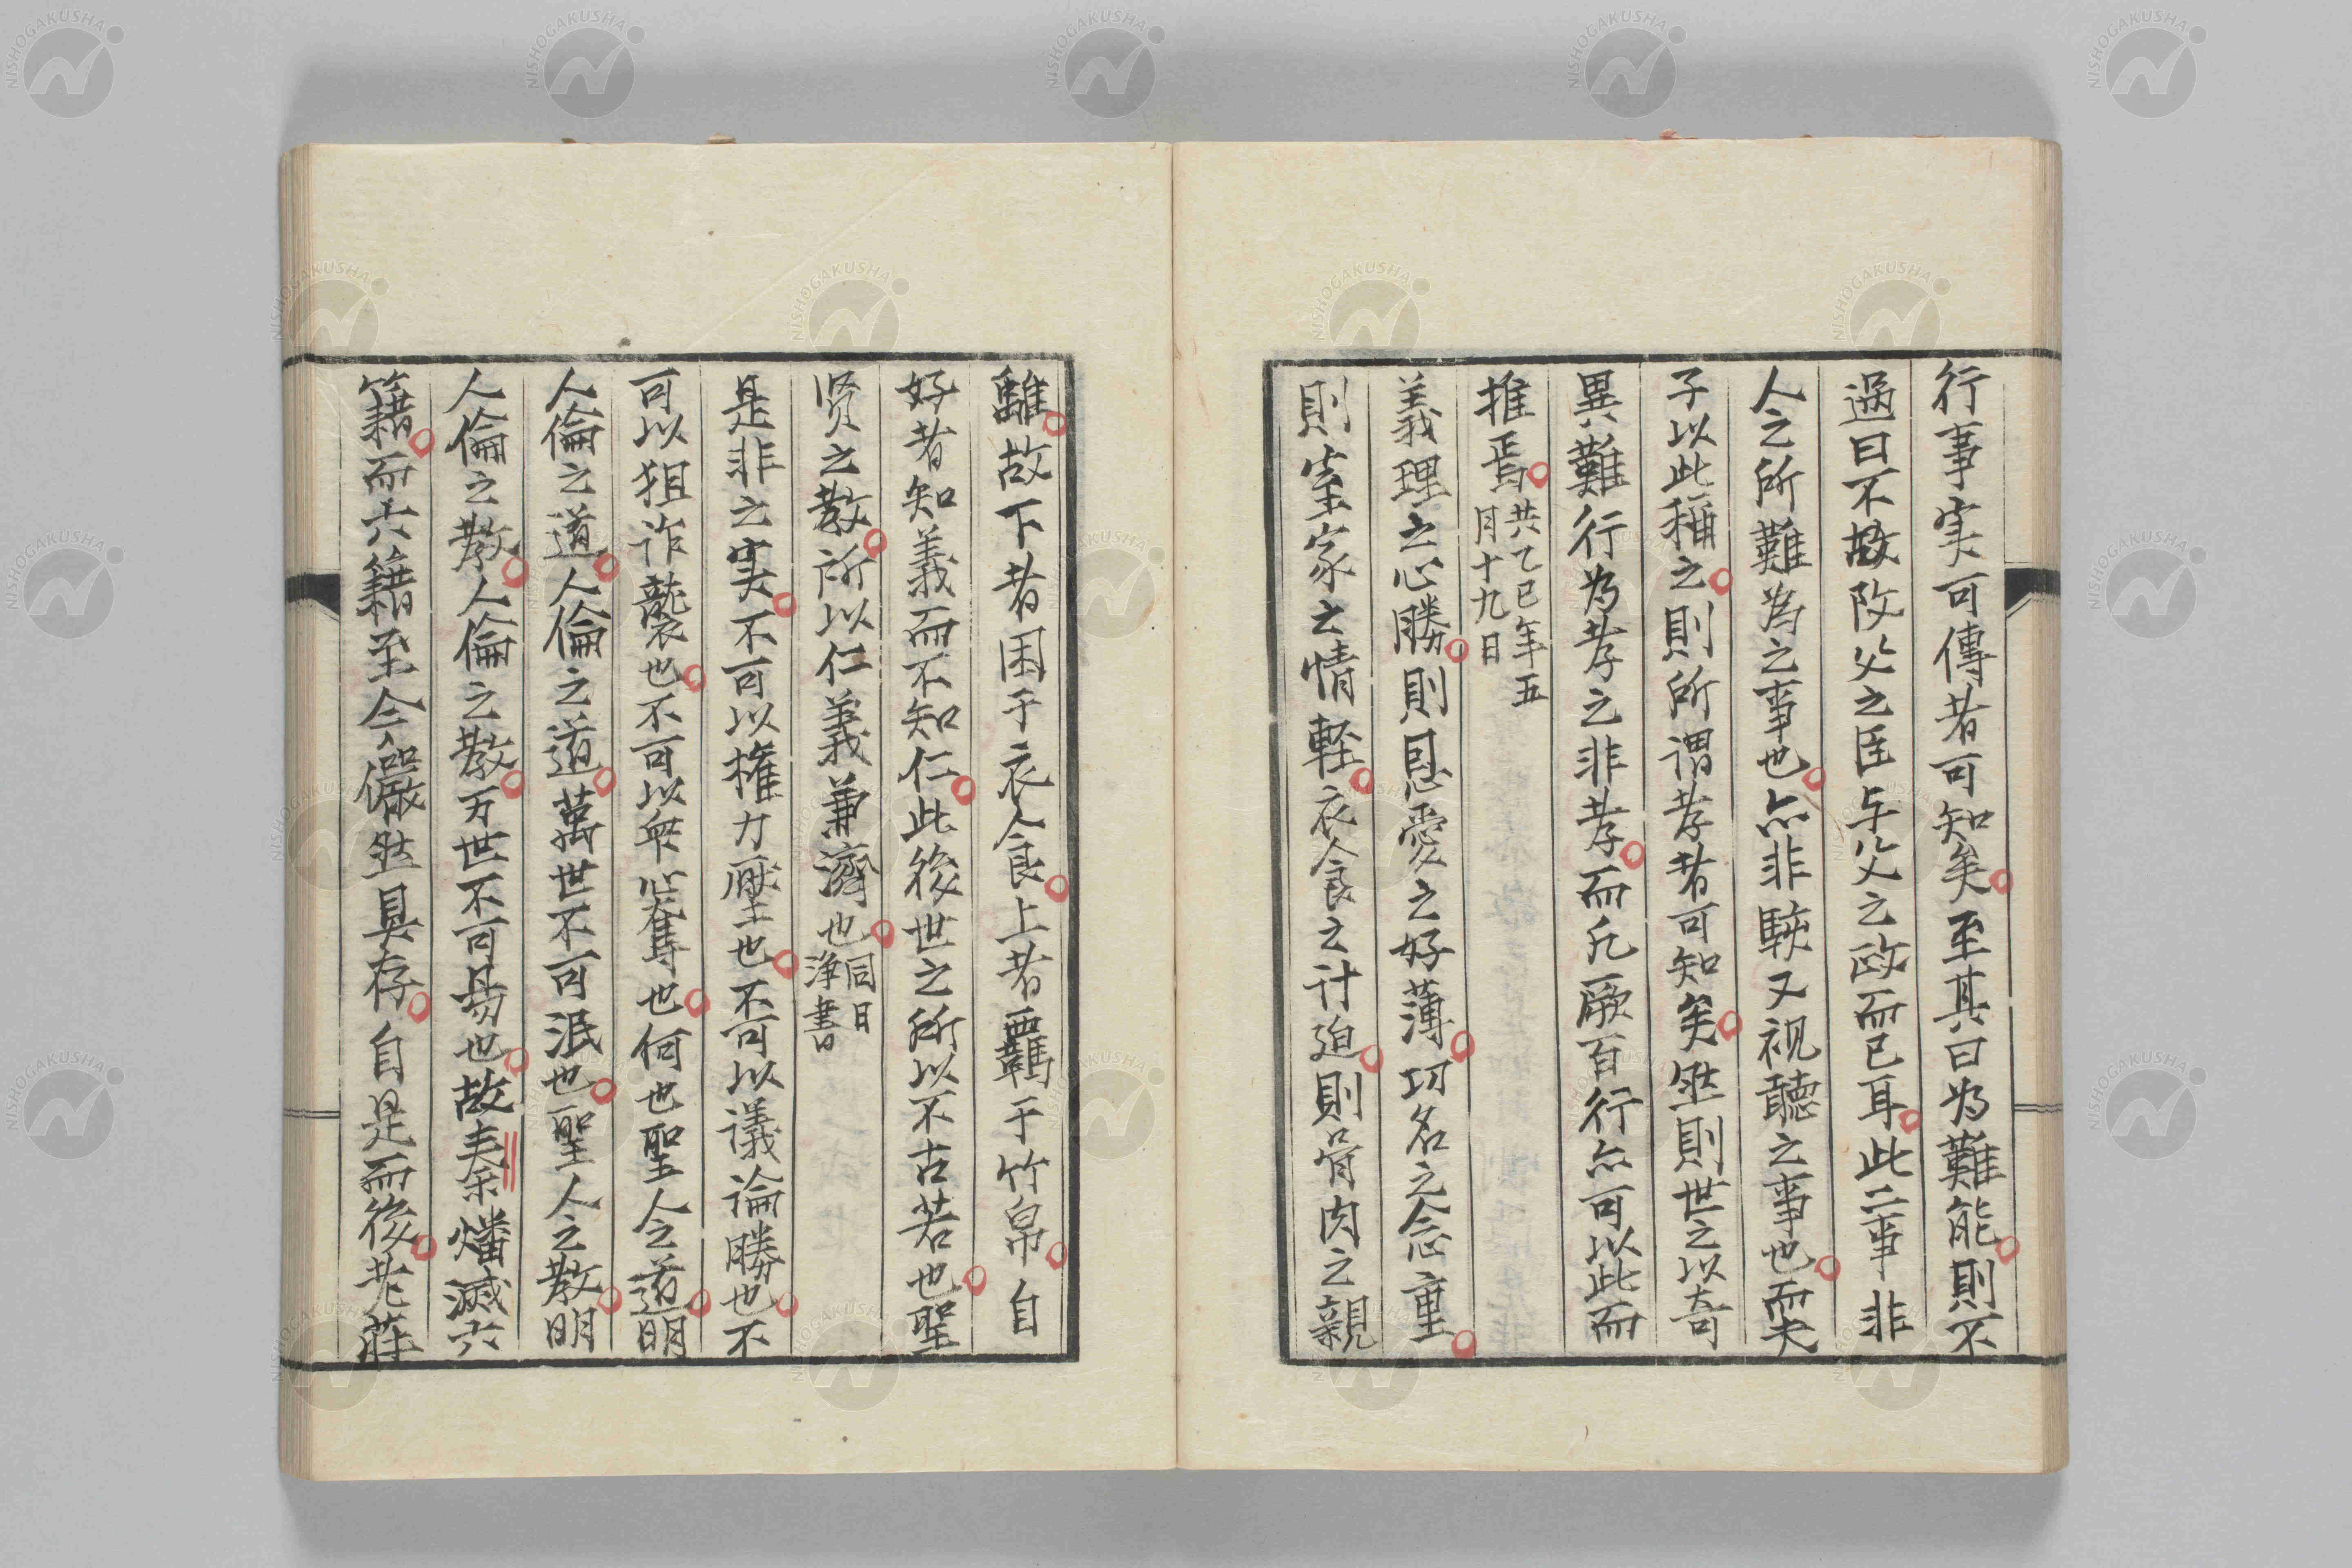 行事実可傳者可知矣至其曰為難能則不
過曰不改父之臣与父之政而已耳此二事非
人之所難為之事也亦非駭又視聽之事也而夫
子以此稱之則所謂孝者可知矣然則世之以奇
異難行為孝之非孝而凡厥百行亦可以此而
推焉共乙巳年五月十九日
義理之心勝則恩愛之好薄功名之念重
則室家之情軽衣食之計迫則骨肉之親
離故下者困于衣食上者羈于竹帛自
好者知義而不知仁此後世之所以不古若也聖
贤之教所以仁義兼濟也同日浄書
是非之実不可以権力壓也不可以議論勝也不
可以狙诈襲也不可以卑心奪也何也聖人之道明
人倫之道人倫之道萬世不可泯也聖人之教明
人倫之教人倫之教万世不可易也故秦燔滅六
籍而六籍至今儼然具存自是而後老莊
NISHOGAKUSHA